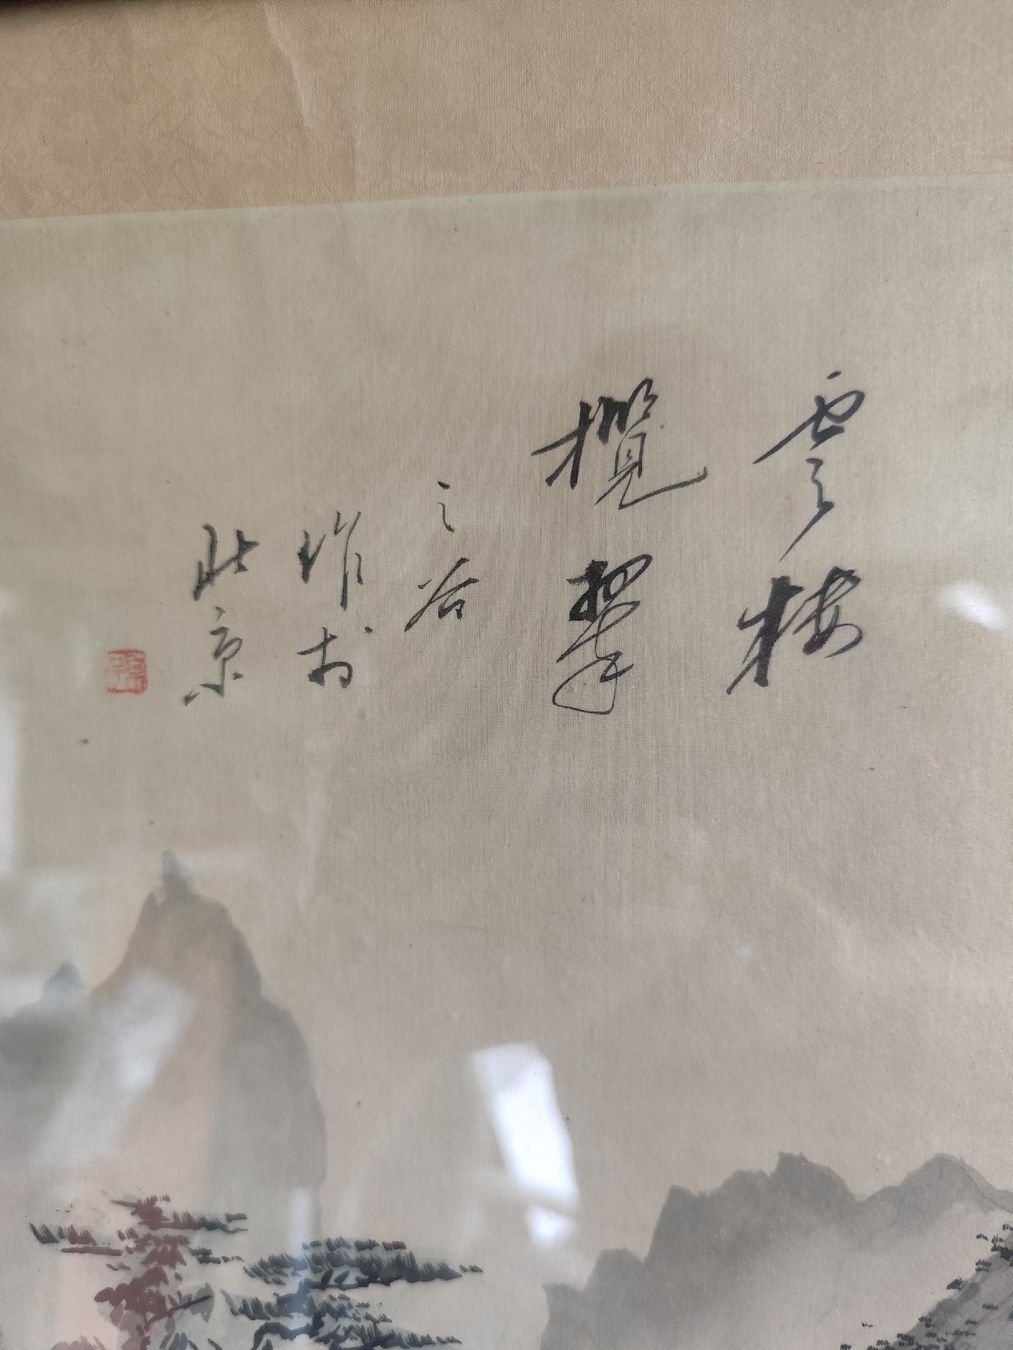 雲樓
攬翠
之谷
作於
北京